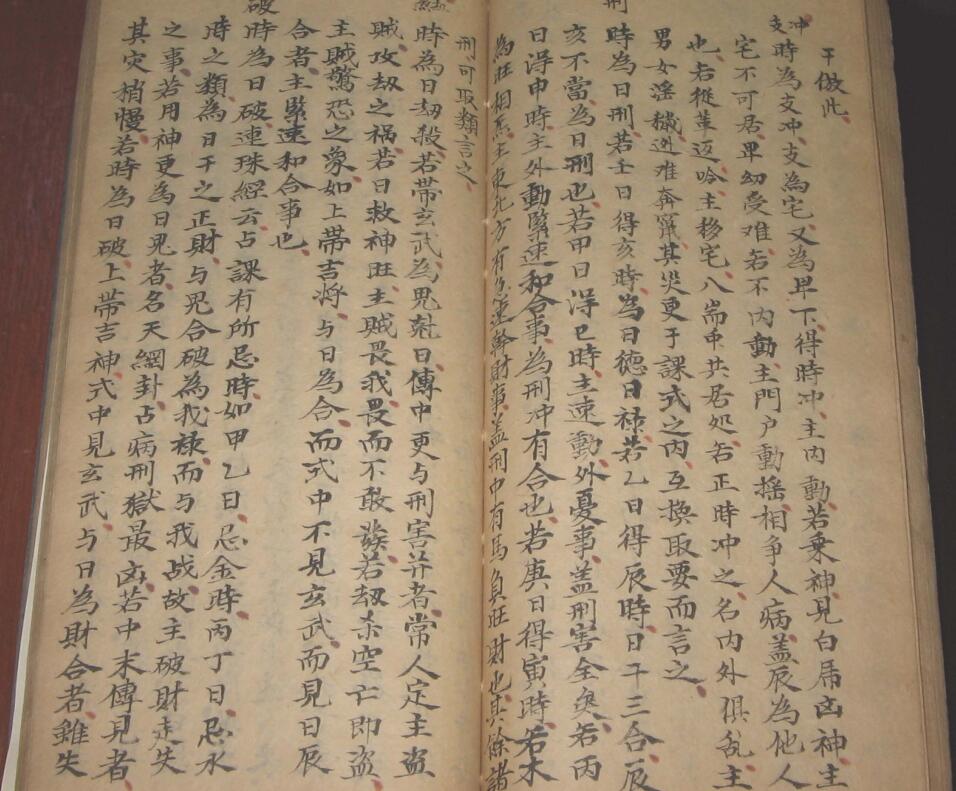 干倣此
冲支
時為支冲支為宅又為卑下得時冲主内動若乗神見白虎凶神主
宅不可居卑幼受难若不内動主門户動搖相争人病盖辰為他人
也若從革返吟主移宅八耑中共居处若正時冲之名内外俱乱主
男女淫穢迯难奔竄其災更于課式之内互換取要而言之
刑
時為日刑若壬日得亥時為日德日禄若乙日得辰時日干三合辰
亥不當為日刑也若甲日淂巳時主速動外憂事盖刑害全矣若丙
日淂申時主外動緊速和合事為刑冲有合也若庚日得寅時若木
為旺相炁主東北方有急速幹財事盖刑中有馬負旺財也其餘諸
刑可取類言之
刼
時為日刼殺若帶玄武為鬼尅日傳中更与刑害并者常人定主盗
賊攻刼之禍若日救神旺主賊畏我畏而不敢發若刼杀空亡即盗
主賊驚恐之象如上帶吉將与日為合而式中不見玄武而見日辰
合者主緊速和合事也
破
時為日破連珠經云占課有所忌時如甲乙日忌金時丙丁日忌水
時之類為日干之正財与鬼合破為我禄而与我战故主破財走失
之事若用神更為日鬼者名天網卦占病刑獄最凶若中末傳見者
其灾稍慢若時為日破上帶吉神式中見玄武与日為財合者雖失